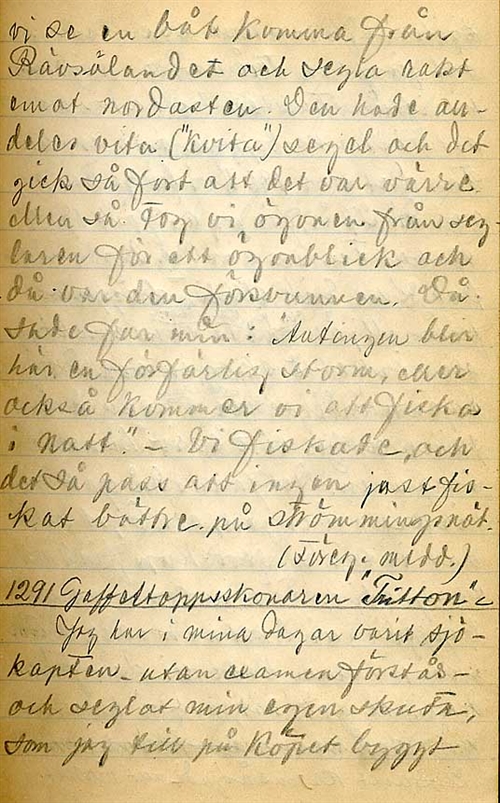 vi se en båt komma från
Rävsölandet och segla rakt
emot nordosten. Den hade an-
deles vita ("kvita") segel och det
gick så fort att det var värre.
Men så tog vi ögonen från seg-
laren för ett ögonblick och
då var den försvunnen. Då
sade far min: "Antingen blir
här en förfärlig storm, eller
också kommer vi att fiska
i natt." – Vi fiskade, och
det så pass att ingen just fis-
kat bättre på strömmingsnät.
(Föreg. medd.)
1291 Gaffeltoppsskonaren "Tritton" –
Jag har i mina dagar varit sjö-
kapten – utan examen förstås –
och seglat min egen skuta,
som jag till på köpet byggt